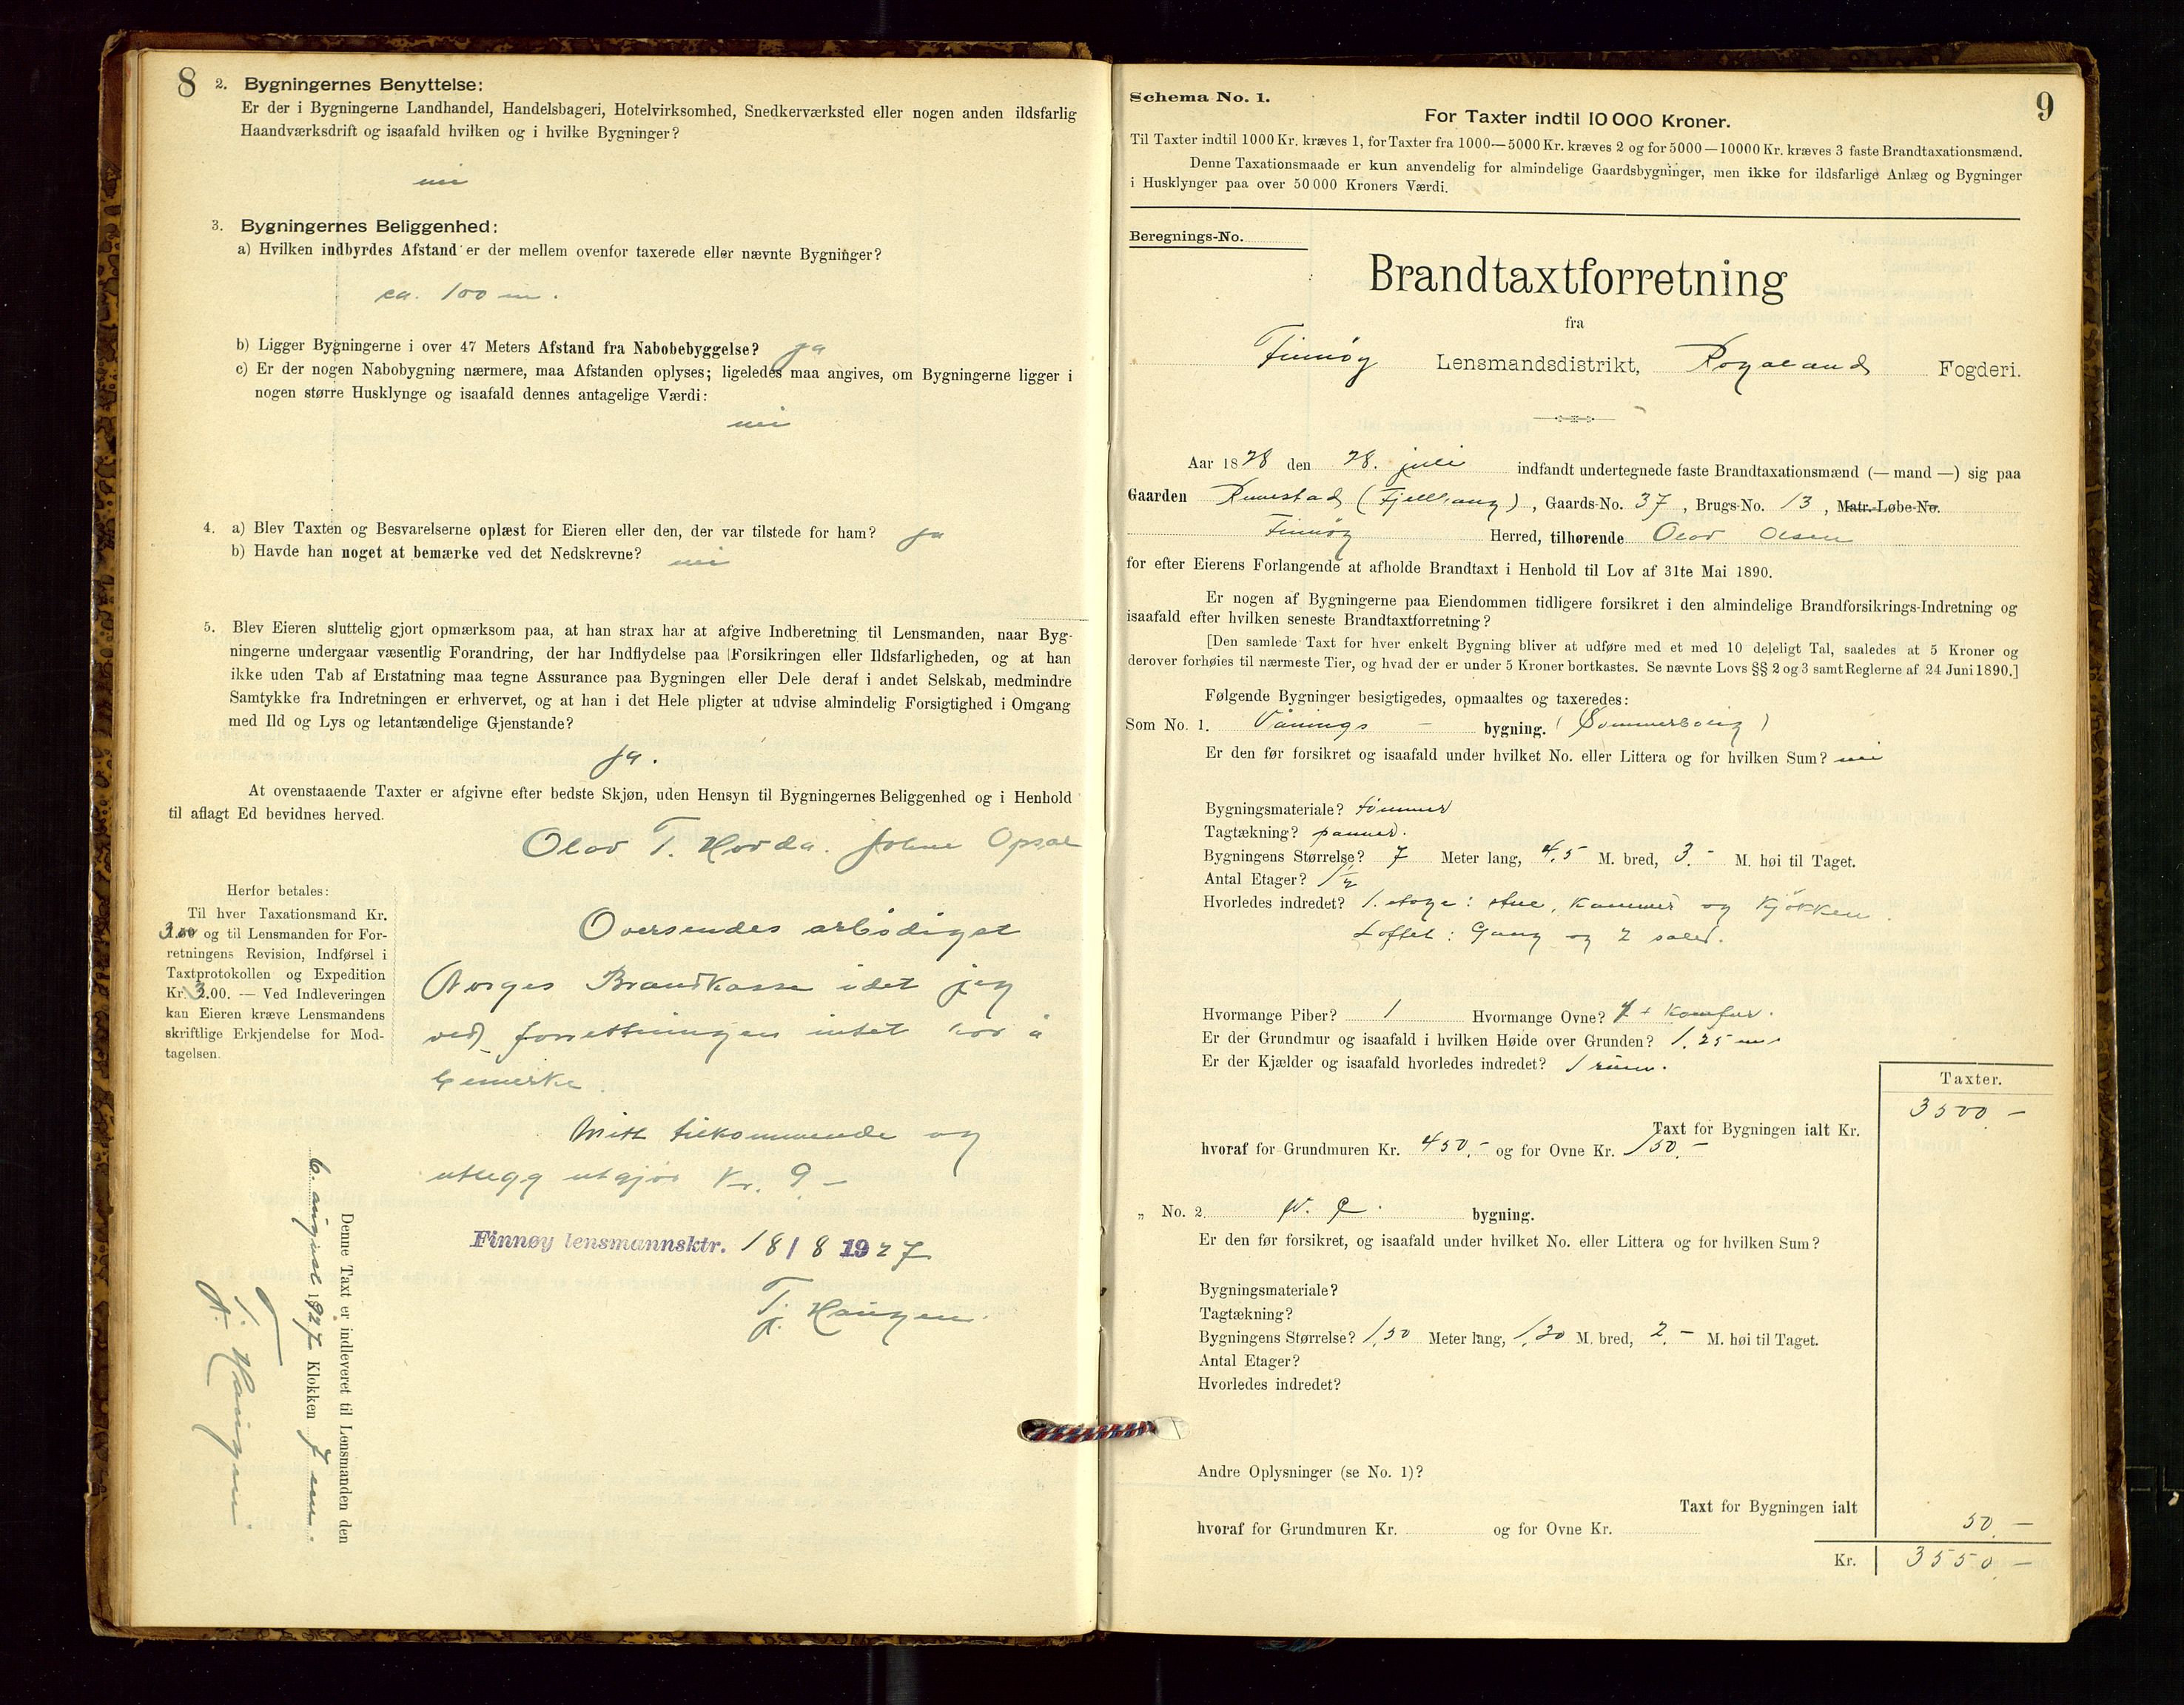 8
2. Bygningernes Benyttelse:
Er der i Bygningerne Landhandel, Handelsbageri, Hotelvirksomhed, Snedkerværksted eller nogen anden ildsfarlig
Haandværksdrift og isaafald hvilken og i hvilke Bygninger?
nei
3. Bygningernes Beliggenhed:
a) Hvilken indbyrdes Afstand er der mellem ovenfor taxerede eller nævnte Bygninger?
ca. 100 m.
b) Ligger Bygningerne i over 47 Meters Afstand fra Nabobebyggelse? ja
c) Er der nogen Nabobygning nærmere, maa Afstanden oplyses; ligeledes maa angives, om Bygningerne ligger i
nogen større Husklynge og isaafald dennes antagelige Værdi:
nei
4. a) Blev Taxten og Besvarelserne oplæst for Eieren eller den, der var tilstede for ham? ja
b) Havde han noget at bemærke ved det Nedskrevne? nei
5. Blev Eieren sluttelig gjort opmærksom paa, at han strax har at afgive Indberetning til Lensmanden, naar Byg-
ningerne undergaar væsentlig Forandring, der har Indflydelse paa Forsikringen eller Ildsfarligheden, og at han
ikke uden Tab af Erstatning maa tegne Assurance paa Bygningen eller Dele deraf i andet Selskab, medmindre
Samtykke fra Indretningen er erhvervet, og at han i det Hele pligter at udvise almindelig Forsigtighed i Omgang
med Ild og Lys og letantændelige Gjenstande?
ja.
At ovenstaaende Taxter er afgivne efter bedste Skjøn, uden Hensyn til Bygningernes Beliggenhed og i Henhold
til aflagt Ed bevidnes herved.
Olav T. Horda. Johne Opsal
Herfor betales:
Til hver Taxationsmand Kr.
3.00 og til Lensmanden for For-
retningens Revision, Indførsel i
Taxtprotokollen og Expedition
Kr. 3.00. — Ved Indleveringen
kan Eieren kræve Lensmandens
skriftlige Erkjendelse for Mod-
tagelsen.
Oversendes arbødigst
Norges Brandkasse idet jeg
ved forretningen intet har å
bemerke.
Mitt tilkommende og
utlegg utgjør Kr. 9 –
Finnøy lensmannsktr. 18/8 1927
Tj. Haugen.
Denne Taxt er indleveret til Lensmanden den
6. august 1927 Klokken 7 em.
Tj. Haugen.
9
Schema No. 1.
For Taxter indtil 10 000 Kroner.
Til Taxter indtil 1000 Kr. kræves 1, for Taxter fra 1000—5000 Kr. kræves 2 og for 5000—10000 Kr. kræves 3 faste Brandtaxationsmænd.
Denne Taxationsmaade er kun anvendelig for almindelige Gaardsbygninger, men ikke for ildsfarlige Anlæg og Bygninger
i Husklynger paa over 50 000 Kroners Værdi.
Beregnings-No.
Brandtaxtforretning
fra
Finnøy Lensmandsdistrikt, Rogaland Fogderi.
Aar 1828 den 28. juli indfandt undertegnede faste Brandtaxationsmænd (— mand —) sig paa
Gaarden Runestad (Fjellhaug), Gaards-No. 37, Brugs-No. 13, Matr.-Løbe-No.
Finnøy Herred, tilhørende Olav Olsen
for efter Eierens Forlangende at afholde Brandtaxt i Henhold til Lov af 31te Mai 1890.
Er nogen af Bygningerne paa Eiendommen tidligere forsikret i den almindelige Brandforsikrings-Indretning og
isaafald efter hvilken seneste Brandtaxtforretning?
[Den samlede Taxt for hver enkelt Bygning bliver at udføre med et med 10 deleligt Tal, saaledes at 5 Kroner og
derover forhøies til nærmeste Tier, og hvad der er under 5 Kroner bortkastes. Se nævnte Lovs §§ 2 og 3 samt Reglerne af 24 Juni 1890.]
Følgende Bygninger besigtigedes, opmaaltes og taxeredes:
Som No. 1. Vånings – bygning. (Sommerbolig)
Er den før forsikret og isaafald under hvilket No. eller Littera og for hvilken Sum? nei
Bygningsmateriale? tømmer
Tagtækning? panner.
Bygningens Størrelse? 7 Meter lang, 4,5 M. bred, 3.- M. høi til Taget.
Antal Etager? 1 1/2
Hvorledes indredet? 1. etage: stue, kammer og kjøkken.
Loftet: Gang og 2 saler.
Hvormange Piber? 1 Hvormange Ovne? 1 + komfur.
Er der Grundmur og isaafald i hvilken Høide over Grunden? 1.25 m.
Er der Kjælder og isaafald hvorledes indredet? 1 rum.
Taxter.
3500 –
Taxt for Bygningen ialt Kr.
hvoraf for Grundmuren Kr. 450.- og for Ovne Kr. 150.-
„ No. 2. W. C. bygning.
Er den før forsikret, og isaafald under hvilket No. eller Littera og for hvilken Sum?
Bygningsmateriale?
Tagtækning?
Bygningens Størrelse? 1,50 Meter lang, 1,30 M. bred, 2.- M. høi til Taget.
Antal Etager?
Hvorledes indredet?
Andre Oplysninger (se No. 1)?
Taxt for Bygningen ialt
hvoraf for Grundmuren Kr. og for Ovne Kr.
50.–
Kr. 3550.–